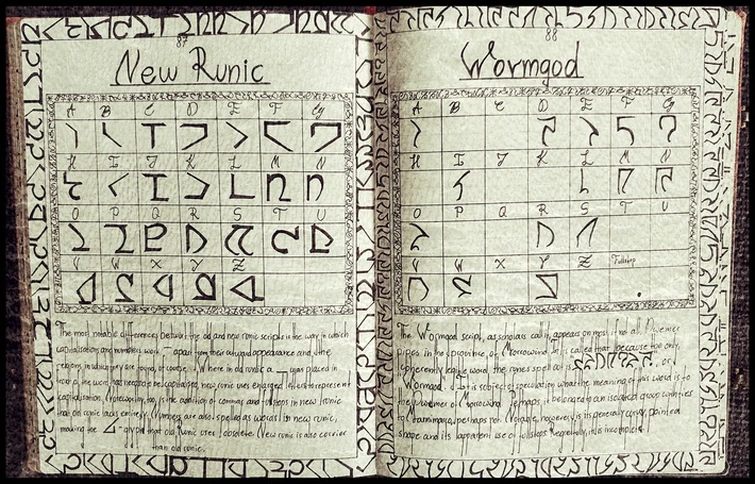 87
New Runic
A B C D E F G
H I J K L M N
O P Q R S T U
V W X Y Z
The most notable differences between the old and new runic scripts is the way in which
capitalisation and numbers work — apart from their cultural appearance and the
regions in which they are found, of course. Where in old runic a was placed in
front of the word has needed to be capitalised, new runic uses enlarged to represent
capitalisation. Noteworthy, too, is the addition of commas and fullstops in new runic
that old runic lacks entirely. Numbers are also spelled as words in new runic,
making the -glyph that old Runic uses obsolete. New runic is also curvier
than old runic.
88
Wormgod
A B C D E F G
H I J K L M N
O P Q R S T U
V W X Y Z Fullstop
The Wormgod script, as scholars call it, appears on most if not all Dwemer
pipes in the province of Morrowind. It is called that because the only
coherently legible word the runes spell out is , or
Wormgod. It is subject to speculation what the meaning of this word is to
the Dwemer of Morrowind. Perhaps it belonged to an isolated group
perhaps not. Notable, however, is its generally curvy, pointed
shape and its apparent use of fullstops. Regretfully, it is incomplete.